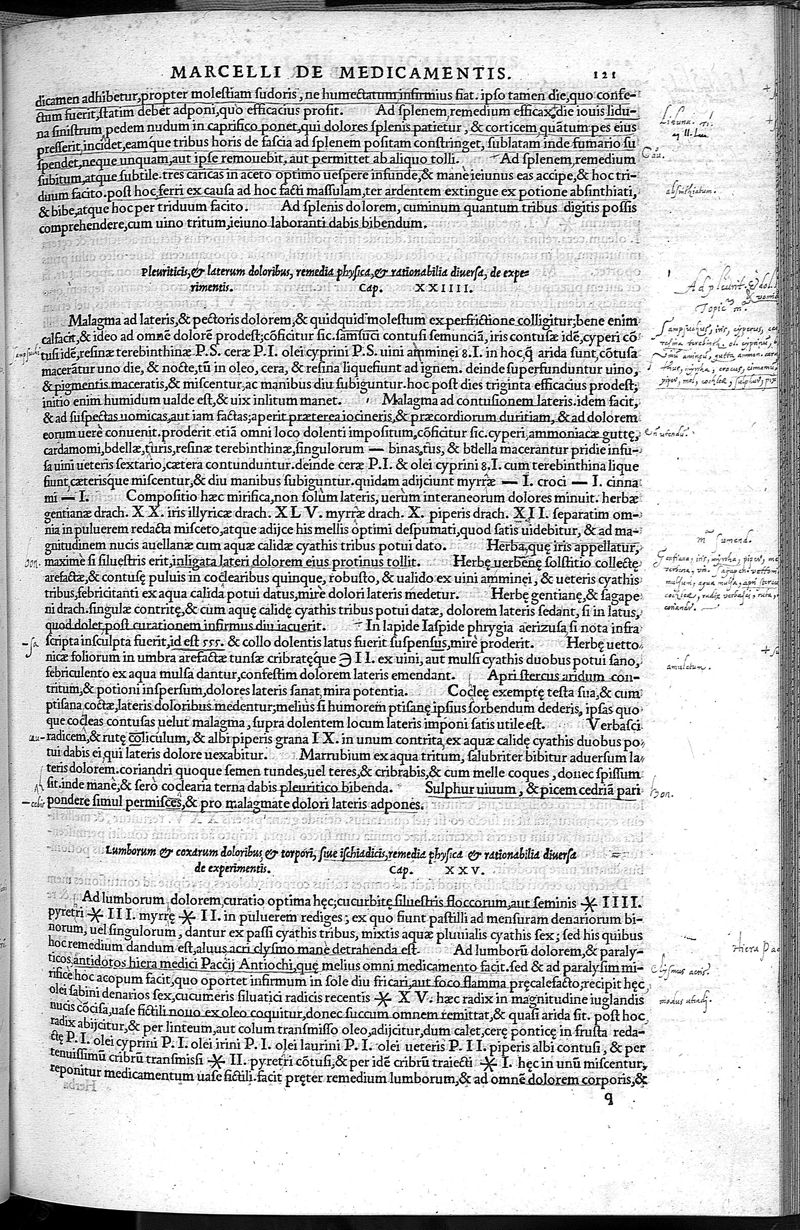 MARCELLI DE MEDICAMENTIS. 121
dicamen adhibetur, propter molestiam sudoris, ne humectatum infirmius fiat. ipso tamen die, quo confe-
ctum fuerit, statim debet adponi, quo efficacius prosit. Ad splenem remedium efficax, die iouis lidu-
na sinistrum pedem nudum in caprifico ponet, qui dolores splenis patietur, & corticem quātum pes eius
presserit, incidet, eamque tribus horis de fascia ad splenem positam constringet, sublatam inde fumario su
spendet, neque unquam, aut ipse remouebit, aut permittet ab aliquo tolli. Ad splenem remedium
subitum, atque subtile. tres caricas in aceto optimo uespere infunde, & mane ieiunus eas accipe, & hoc tri-
duum facito. post hoc ferri ex causa ad hoc facti massulam, ter ardentem extingue ex potione absinthiati,
& bibe, atque hoc per triduum facito. Ad splenis dolorem, cuminum quantum tribus digitis possis
comprehendere, cum uino tritum, ieiuno laboranti dabis bibendum.
Pleuriticis, & laterum doloribus, remedia physica, & rationabilia diuersa, de expe-
rimentis. Cap. XXIIII.
Malagma ad lateris, & pectoris dolorem, & quidquid molestum ex perfrictione colligitur; bene enim
calfacit, & ideo ad omnē dolorē prodest; cōficitur sic. samsuci contusi semunciā, iris contusæ idē, cyperi cō
tusi idē, resinæ terebinthinæ P.S. ceræ P.I. olei cyprini P.S. uini amminei ȣ.I. in hoc, q̃ arida sunt, cōtusa
macerātur uno die, & nocte, tū in oleo, cera, & resina liquefiunt ad ignem. deinde superfunduntur uino,
& pigmentis maceratis, & miscentur, ac manibus diu subiguntur. hoc post dies triginta efficacius prodest,
initio enim humidum ualde est, & uix inlitum manet. Malagma ad contusionem lateris. idem facit,
& ad suspectas uomicas, aut iam factas; aperit præterea iocineris, & præcordiorum duritiam, & ad dolorem
eorum uere conuenit. proderit etiā omni loco dolenti impositum, cōficitur sic. cyperi, ammoniacæ guttę,
cardamomi, bdellæ, turis, resinæ terebinthinæ, singulorum — binas, tus, & bdella macerantur pridie infu-
sa uini ueteris sextario, cætera contunduntur. deinde ceræ P.I. & olei cyprini ȣ.I. cum terebinthina lique
fiunt, cæterisque miscentur, & diu manibus subiguntur. quidam adijciunt myrræ — I. croci — I. cinna
mi — I. Compositio hæc mirifica, non solum lateris, uerum interaneorum dolores minuit. herbæ
gentianæ drach. XX. iris illyricæ drach. XLV. myrræ drach. X. piperis drach. XII. separatim om-
nia in puluerem redacta misceto, atque adijce his mellis optimi despumati, quod satis uidebitur, & ad ma-
gnitudinem nucis auellanæ cum aquæ calidæ cyathis tribus potui dato. Herba, quę iris appellatur,
maxime si siluestris erit, inligata lateri dolorem eius protinus tollit. Herbę uerbenę solstitio collectę
arefactæ, & contusę puluis in coclearibus quinque, robusto, & ualido ex uini amminei, & ueteris cyathis
tribus, febricitanti ex aqua calida potui datus, mire dolori lateris medetur. Herbę gentianę, & sagape
ni drach. singulæ contritę, & cum aquę calidę cyathis tribus potui datæ, dolorem lateris sedant, si in latus,
quod dolet, post curationem infirmus diu iacuerit. In lapide Iaspide phrygia aerizusa, si nota infra
scripta insculpta fuerit, id est 555. & collo dolentis latus fuerit suspensus, mire proderit. Herbę uetto
nicæ foliorum in umbra arefactæ tunsæ cribratęque ℈ II. ex uini, aut mulsi cyathis duobus potui sano,
febriculento ex aqua mulsa dantur, confestim dolorem lateris emendant. Apri stercus aridum con-
tritum, & potioni inspersum, dolores lateris sanat mira potentia. Coclęę exemptę testa sua, & cum
ptisana coctæ, lateris doloribus medentur; melius si humorem ptisanę ipsius sorbendum dederis, ipsas quo
que cocleas contusas uelut malagma, supra dolentem locum lateris imponi satis utile est. Verbasci
radicem, & rutę coliculum, & albi piperis grana IX. in unum contrita, ex aquæ calidę cyathis duobus po
tui dabis ei, qui lateris dolore uexabitur. Marrubium ex aqua tritum, salubriter bibitur aduersum la-
teris dolorem. coriandri quoque semen tundes, uel teres, & cribrabis, & cum melle coques, donec spissum
sit. inde mane, & sero coclearia terna dabis pleuritico bibenda. Sulphur uiuum, & picem cedriā pari
pondere simul permisces, & pro malagmate dolori lateris adpones.
Lumborum & coxarum doloribus & torpori, siue ischiadicis, remedia physica & rationabilia diuersa
de experimentis. Cap. XXV.
Ad lumborum dolorem, curatio optima hęc; cucurbitę siluestris floccorum, aut seminis ✳ IIII.
pyretri ✳ III. myrrę ✳ II. in puluerem rediges; ex quo fiunt pastilli ad mensuram denariorum bi-
norum, uel singulorum, dantur ex passi cyathis tribus, mixtis aquæ pluuialis cyathis sex; sed his quibus
hoc remedium dandum est, aluus acri clysmo mane detrahenda est. Ad lumborū dolorem, & paraly-
ticos antidotos hiera medici Paccij Antiochi, quę melius omni medicamento facit. sed & ad paralysim mi-
rifice hoc acopum facit, quo oportet infirmum in sole diu fricari, aut foco flamma pręcalefacto, recipit hęc
olei sabini denarios sex, cucumeris siluatici radicis recentis ✳ XV. hæc radix in magnitudine iuglandis
nucis cōcisa, uase fictili nouo ex oleo coquitur, donec succum omnem remittat, & quasi arida sit. post hoc
radix abijcitur, & per linteum, aut colum transmisso oleo, adijcitur, dum calet, cerę ponticę in frusta reda-
ctę P.I. olei cyprini P.I. olei irini P.I. olei laurini P.I. olei ueteris P.II. piperis albi contusi, & per
tenuissimū cribrū transmissi ✳ II. pyretri cōtusi, & per idē cribrū traiecti ✳ I. hęc in unū miscentur,
reponitur medicamentum uase fictili. facit pręter remedium lumborum, & ad omnē dolorem corporis, &
q
absinthiatum.
amuletum.
modus utēdj.